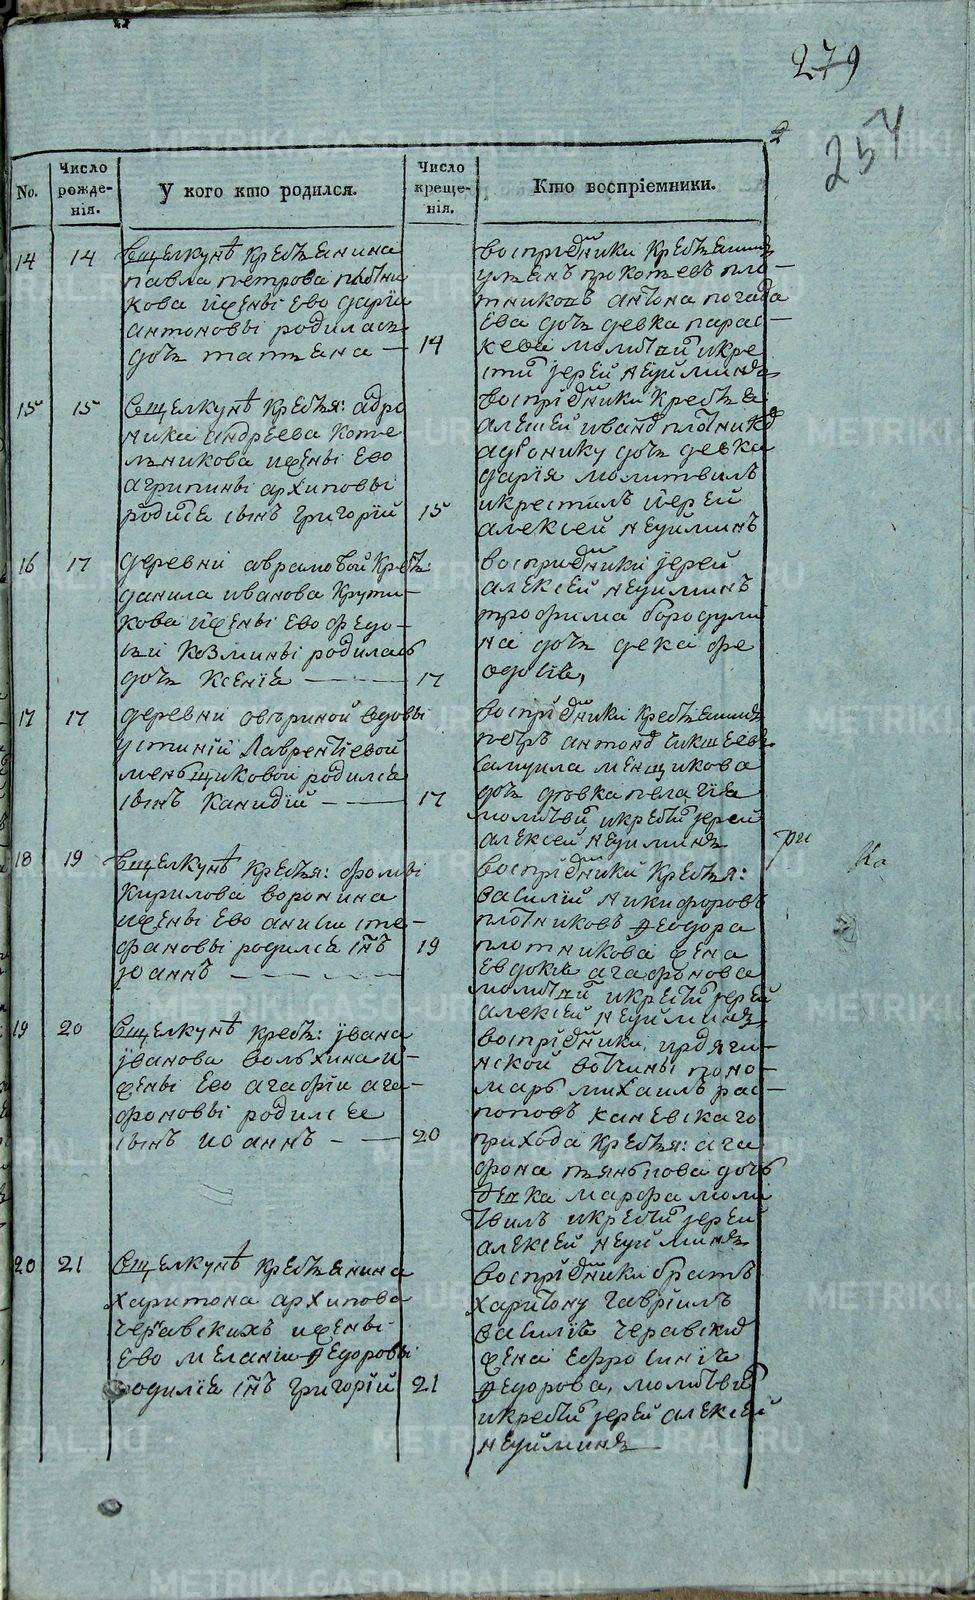 279
257
No.
Число рожде-нія.
У кого кто родился.
Число креще-нія.
Кто воспріемники.
14
14
вщелкунѣ крестьянина
павла петрова плотни
кова ижены ево дарiи
антоновы родилась
дочь татьяна —
14
воспрiемники крестьянинъ
ульянъ прокопьевъ пло-
тниковъ антона
ева дочь девка парас-
кева молитвилъ икре
стилъ iерей неуйминъ
15
15
вщелкунѣ крестья: адро
ника андреева коте
льникова ижены ево
агрипины архиповы
родился сынъ григорiй
15
воспрiемники крестья:
алексей ивановъ плотников
адронику дочь девка
дарiя молитвилъ
икрестилъ iерей
алексей неуйминъ
16
17
деревни аврамовой крестья:
данила иванова крути-
кова ижены ево федо-
сьи козмины родилась
дочь ксенiя
17
воспрiемники iерей
алексей неуйминъ
трофима бородули
на дочь девка фе
одосiя,
17
17
деревни овериной вдовы
устинiи лаврентiевой
меньщиковой родился
сынъ канидiй
17
воспрiемники крестьянинъ
петръ антонов
самуила менщикова
дочь девка пелагiя
молитвилъ икрестилъ iерей
алексей неуйминъ
18
19
вщелкунѣ крестья: фомы
кирилова воронина
ижены ево анисьи сте-
фановы родился сынъ
iоаннъ
19
воспрiемники крестья:
василiй никифоровъ
плотниковъ феодора
плотникова жена
евдокiя агафонова
молитвилъ икрестилъ iерей
алексей неуйминъ
19
20
вщелкунѣ крестья: iвана
iванова волыхина и-
жены ево агафiи ага-
фоновы родился
сынъ иоаннъ
20
воспрiемники
нской вотчины поно-
марь михаилъ рас-
поповъ каневскаго
прихода крестья: ага
фона пьянкова дочь
девка марфа моли
твилъ икрестилъ iерей
алексей неуйминъ
20
21
вщелкунѣ крестьянина
харитона архипова
черавскихъ ижены
ево меланiи федоровы
родился сынъ григорiй
21
воспрiемники братъ
харитону гаврiилъ
василiя черавских
жена ефросинiя
федорова, молитвилъ
икрестилъ iерей алексей
неуйминъ
METRIKI.GASO-URAL.RU